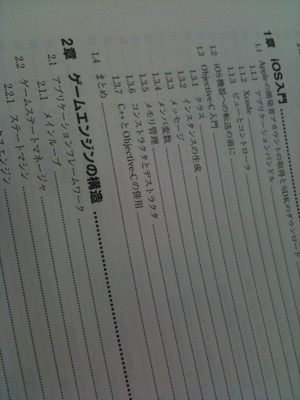 1章 iOS入門
1.1 Appleの開発者アカウントの取得とSDKのダウンロード
1.1.1 アプリケーションバンドル
1.1.2 Xcode
1.1.3 ビューとコントローラ
1.2 iOS機器への転送の前に
1.3 Objective-C入門
1.3.1 クラス
1.3.2 インスタンスの生成
1.3.3 メッセージ
1.3.4 メンバ変数
1.3.5 メモリ管理
1.3.6 コンストラクタとデストラクタ
1.3.7 C++とObjective-Cの併用
1.4 まとめ
2章 ゲームエンジンの構造
2.1 アプリケーションフレームワーク
2.1.1 メインループ
2.2 ゲームステートマネージャ
2.2.1 ステートマシン